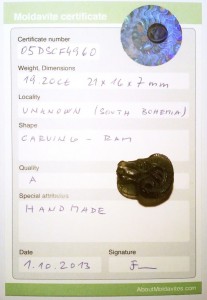 Moldavite certificate
Certificate number
05DSCF4960
Weight, Dimensions
19.20ct 21 x 16 x 7 mm
Locality
UNKNOWN (SOUTH BOHEMIA)
Shape
CARVING - RAM
Quality
A
Special attributes
HANDMADE
Date
Signature
1.10.2013
AboutMoldavites.com